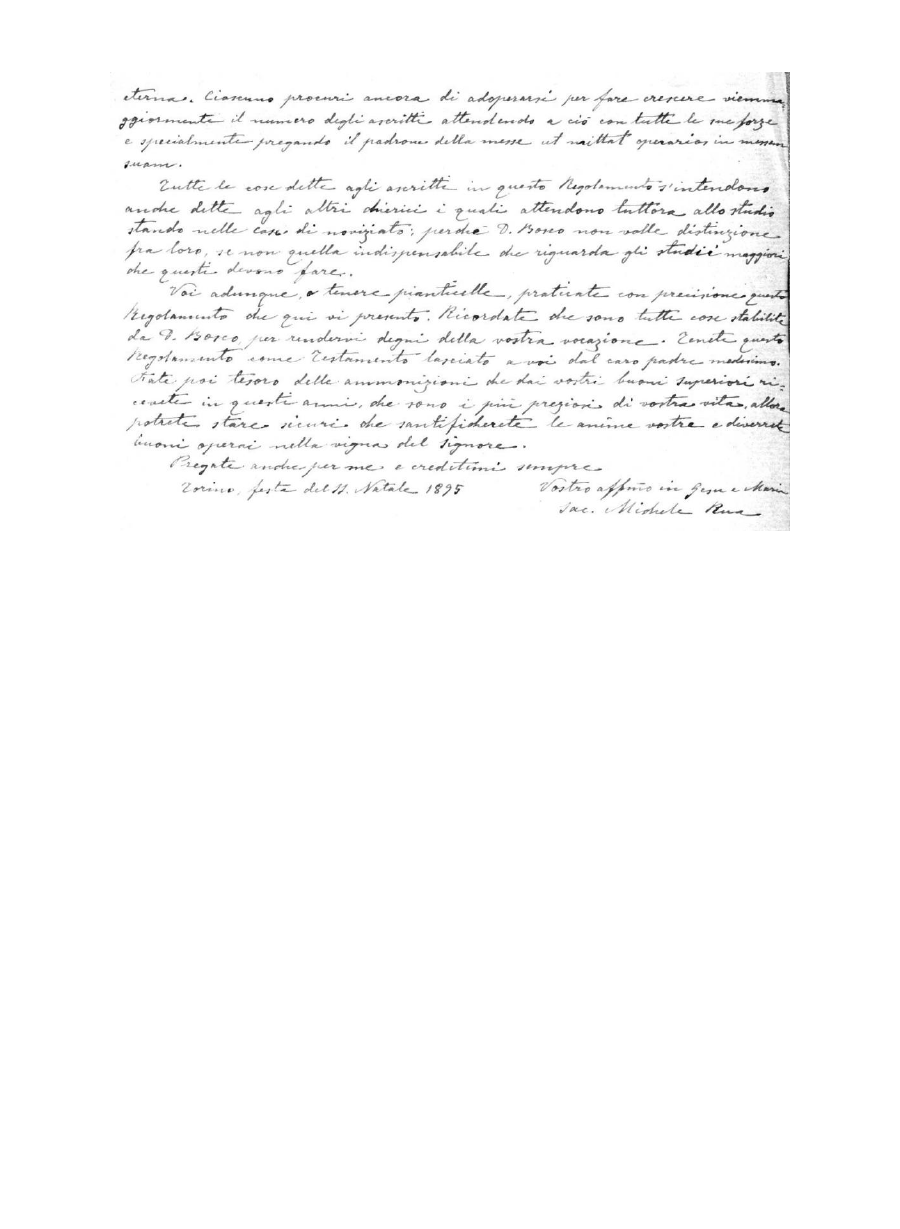 eterna. Ciascuno procuri ancora di adoperarsi per fare crescere viemma
ggiormente il numero degli ascritti attendendo a ciò con tutte le sue forze
e specialmente pregando il padrone della messe ut mittat operarios in messem
suam.
Tutte le cose dette agli ascritti in questo Regolamento s'intendono
anche dette agli altri chierici i quali attendono tuttora allo studio
stando nelle case di noviziato; perchè D. Bosco non volle distinzione
fra loro, se non quella indispensabile che riguarda gli studii maggiori
che questi devono fare.
Voi adunque, o tenere pianticelle, praticate con precisione questo
Regolamento che qui vi presento. Ricordate che sono tutte cose stabilite
da D. Bosco per rendervi degni della vostra vocazione. Tenete questo
Regolamento come Testamento lasciato a voi dal caro padre medesimo.
Fate poi tesoro delle ammonizioni che dai vostri buoni superiori ri-
cevete in questi anni, che sono i più preziosi di vostra vita, allora
potrete stare sicuri che santificherete le anime vostre e diverrete
buoni operai nella vigna del Signore.
Pregate anche per me e credetemi sempre
Torino, festa del SS. Natale 1895 Vostro affmo in Gesu e Maria
Sac. Michele Rua